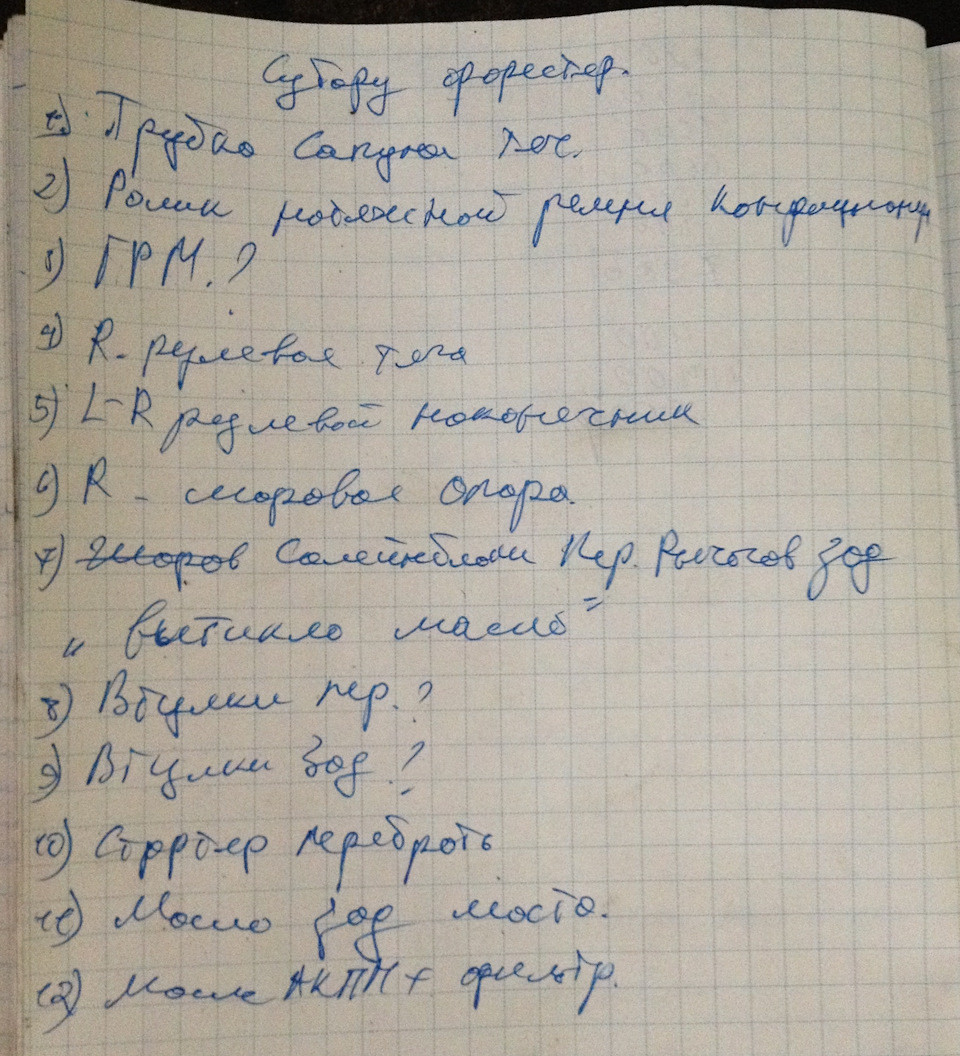 Субару форестер.
1) Трубка Сапуна теч.
2) Ролик натяжной ремня Кондиционер
3) ГРМ. ?
4) R- рулевая тяга
5) L-R рулевой наконечник
6) R - шаровая Опора.
7) Шаров Салейнблоки Пер. Рычагов Зад
" вытикло масло"
8) Втулки пер. ?
9) Втулки Зад ?
10) Стартер перебрать
11) Масло Зад моста.
12) Масло АКПП + фильтр.